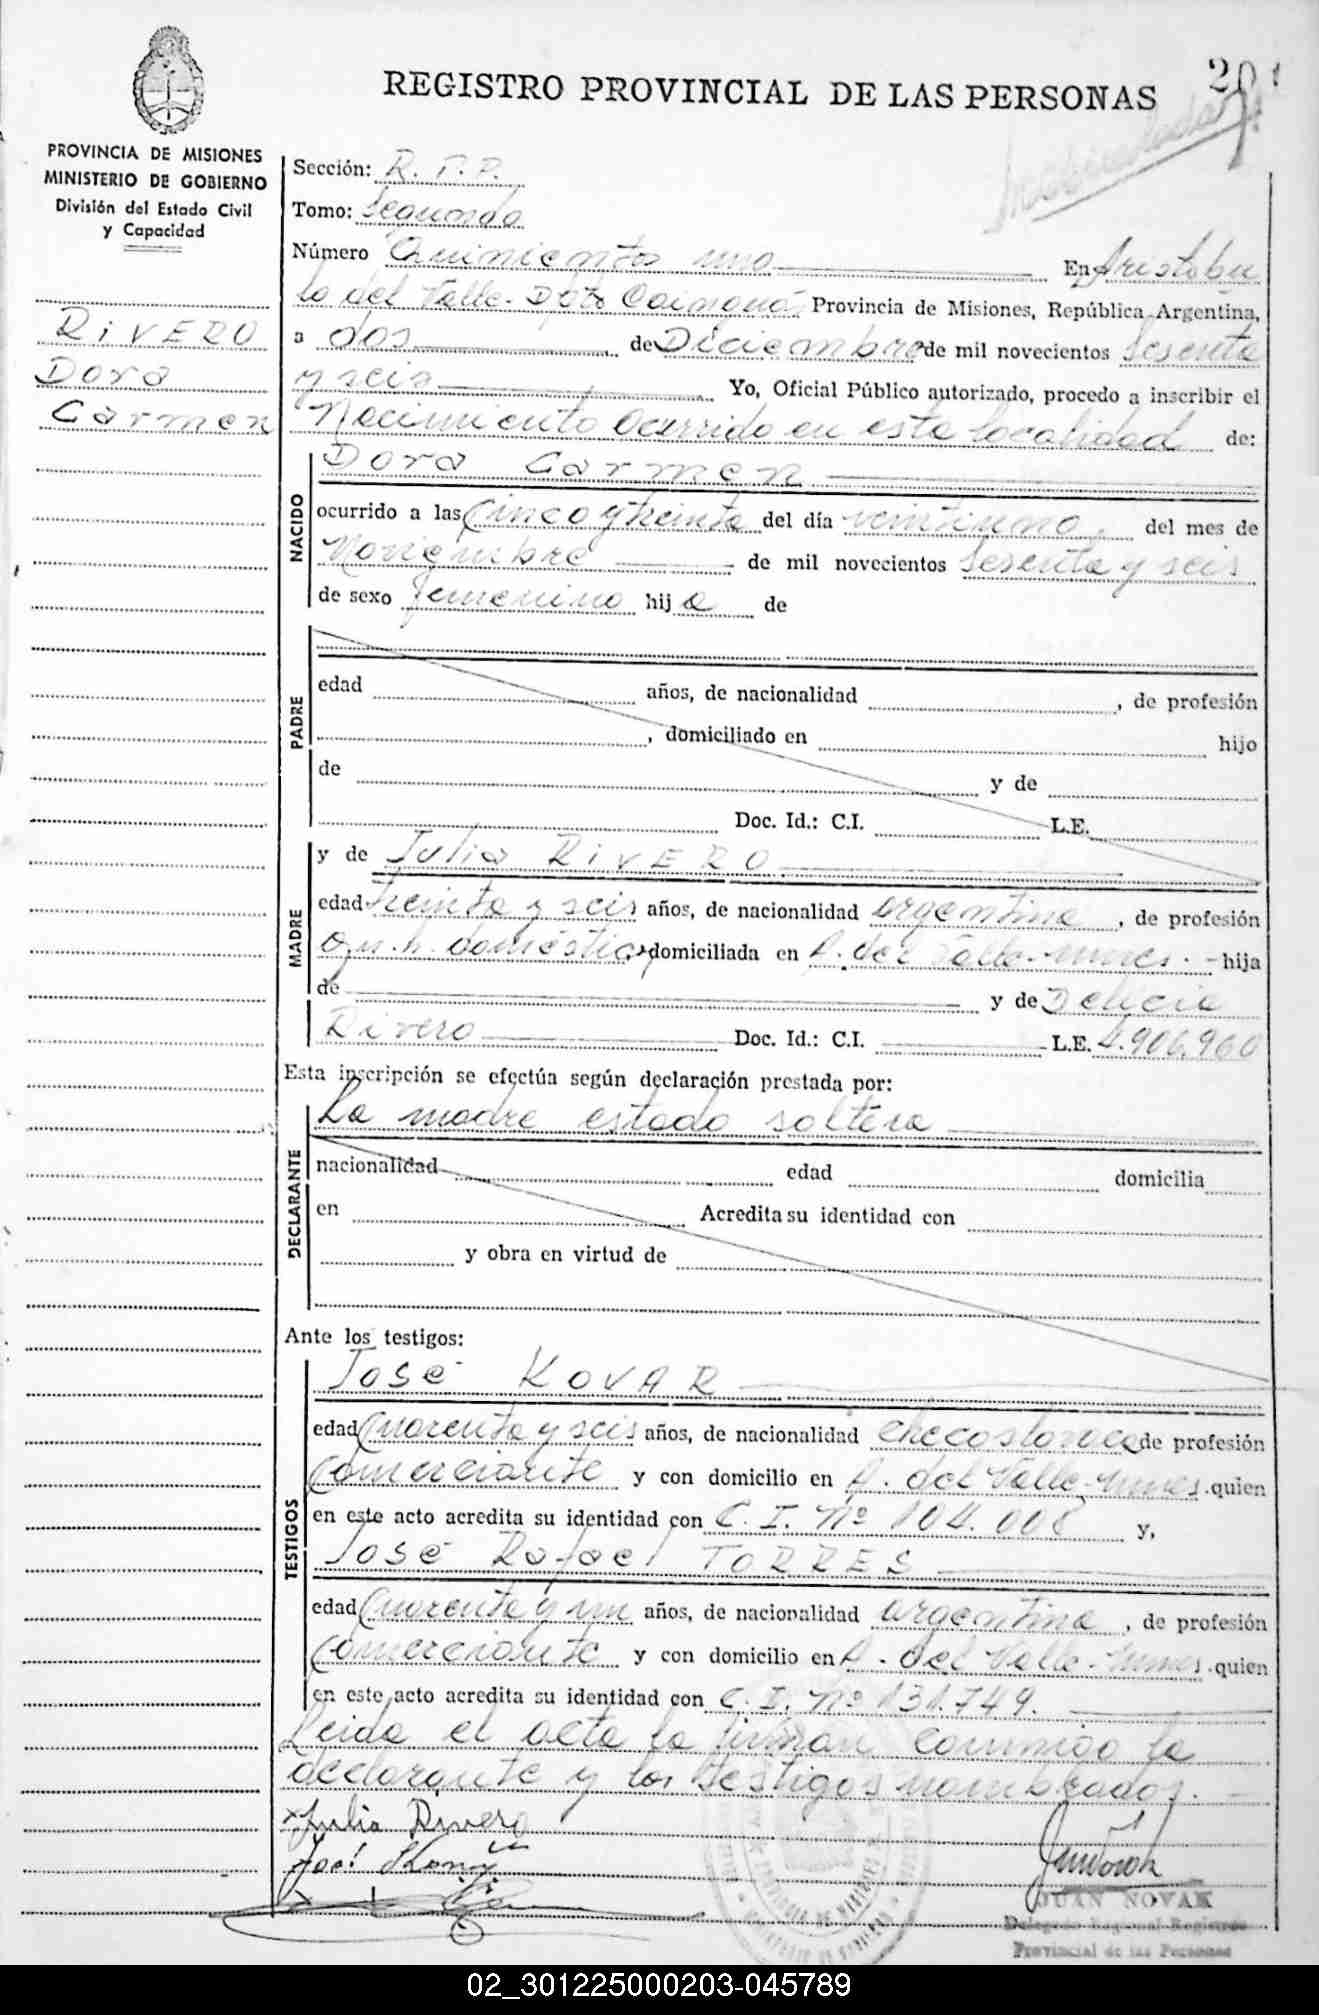 REGISTRO PROVINCIAL DE LAS PERSONAS
PROVINCIA DE MISIONES
MINISTERIO DE GOBIERNO
División del Estado Civil
y Capacidad
RIVERO
Dora
Carmen
Sección: R.P.P.
Tomo: Segundo
Número Quinientos uno En Aristóbu
lo del Valle - Dpto Cainguás Provincia de Misiones, República Argentina,
a dos de Diciembre de mil novecientos Sesenta
y seis Yo, Oficial Público autorizado, procedo a inscribir el
Nacimiento Ocurrido en esta localidad de:
NACIDO
Dora Carmen
ocurrido a las Cinco y treinta del día veintiuno del mes de
Noviembre de mil novecientos Sesenta y seis
de sexo femenino hija de
PADRE
edad años, de nacionalidad , de profesión
, domiciliado en hijo
de y de
Doc. Id.: C.I. L.E.
MADRE
y de Julia RIVERO
edad treinta y seis años, de nacionalidad argentina , de profesión
q.n.h. doméstic domiciliada en A. del Valle - Mnes. - hija
de y de Delicia
Rivero Doc. Id.: C.I. L.E. 4.906.960
Esta inscripción se efectúa según declaración prestada por:
DECLARANTE
La madre estado soltera
nacionalidad edad domicilia
en Acredita su identidad con
y obra en virtud de
Ante los testigos:
TESTIGOS
José KOVAR
edad Cuarenta y seis años, de nacionalidad checoslovaca de profesión
Comerciante y con domicilio en A. del Valle - Mnes. quien
en este acto acredita su identidad con C. I. Nº 104.008 y,
José Rafael TORRES
edad Cuarenta y un años, de nacionalidad argentina , de profesión
Comerciante y con domicilio en A. del Valle - Mnes. quien
en este acto acredita su identidad con C. I. Nº 131.749.
Leida el acta la firman conmigo la
declarante y los testigos nombrados.
Julia Rivero
JUAN NOVAK
Delegado Regional Registro
Provincial de las Personas
02_301225000203-045789